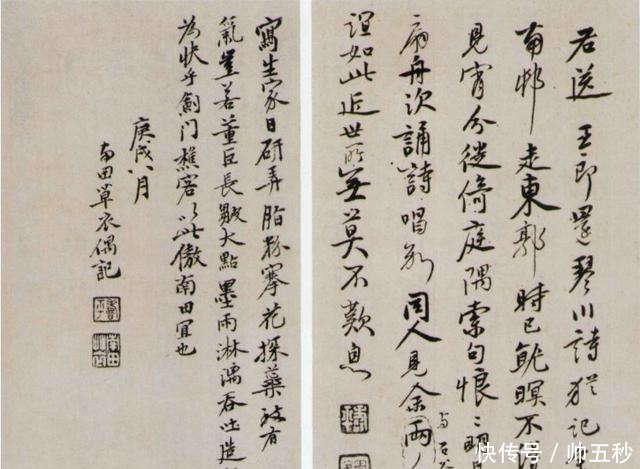 君送王郎還琴川詩猶記
南邨走東郭時已就暝不
見宵分徙倚庭隅索句恨
扁舟次誦詩唱別同人見余兩人
与石谷
誼如此近世所無莫不歎息
寫生家日研弄脂粉搴花探蕊致有
氣豈若董巨長皴大點墨雨淋漓吞吐造
為快乎劍門樵客以此傲南田宜也
庚戌八月
南田草衣偶記
快传号/帅五秒